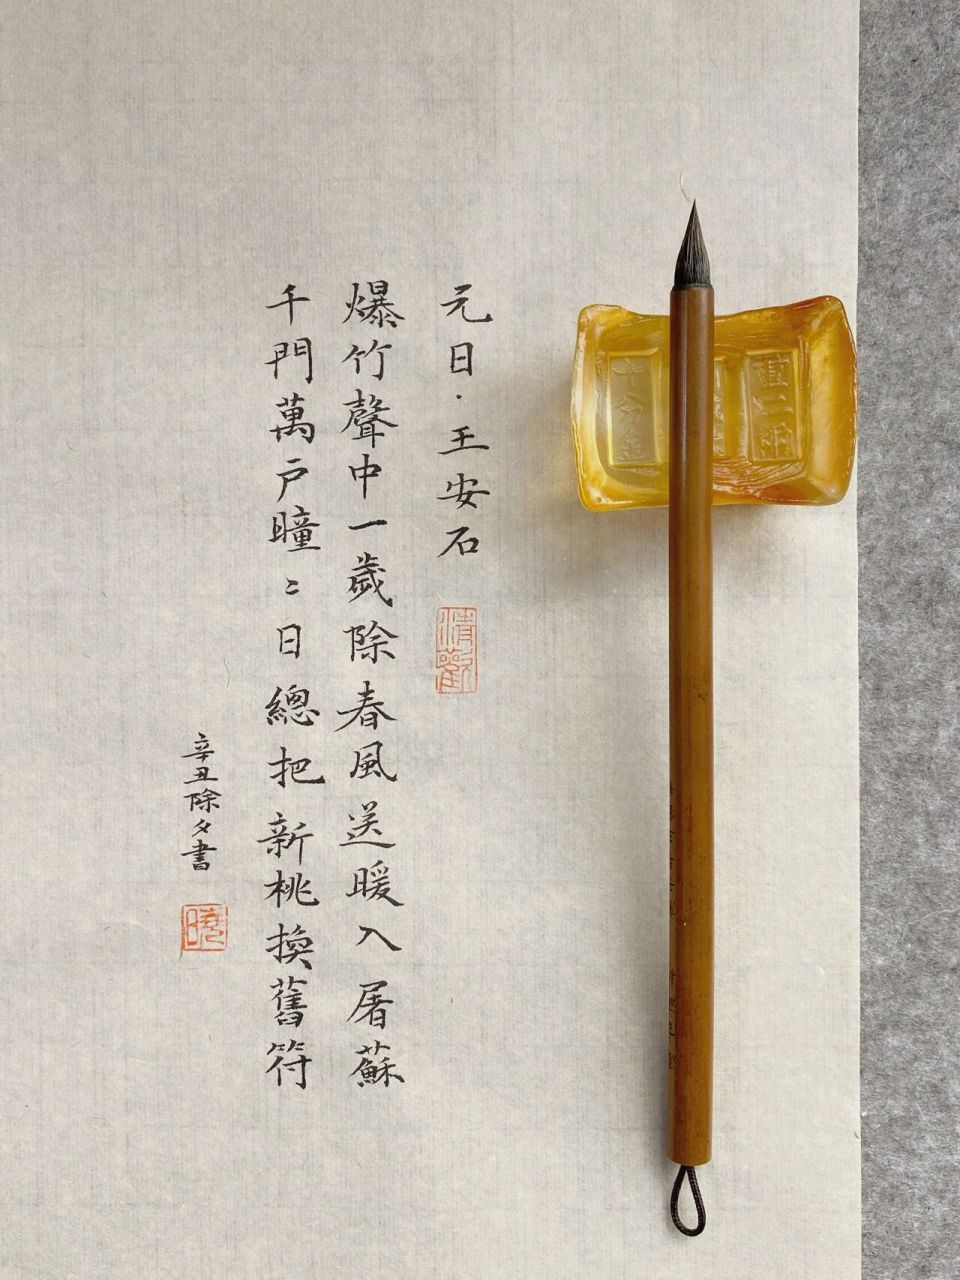 元日·王安石
清歡
爆竹聲中一歲除春風送暖入屠蘇
千門萬戶曈〻日總把新桃換舊符
辛丑除夕書
曉